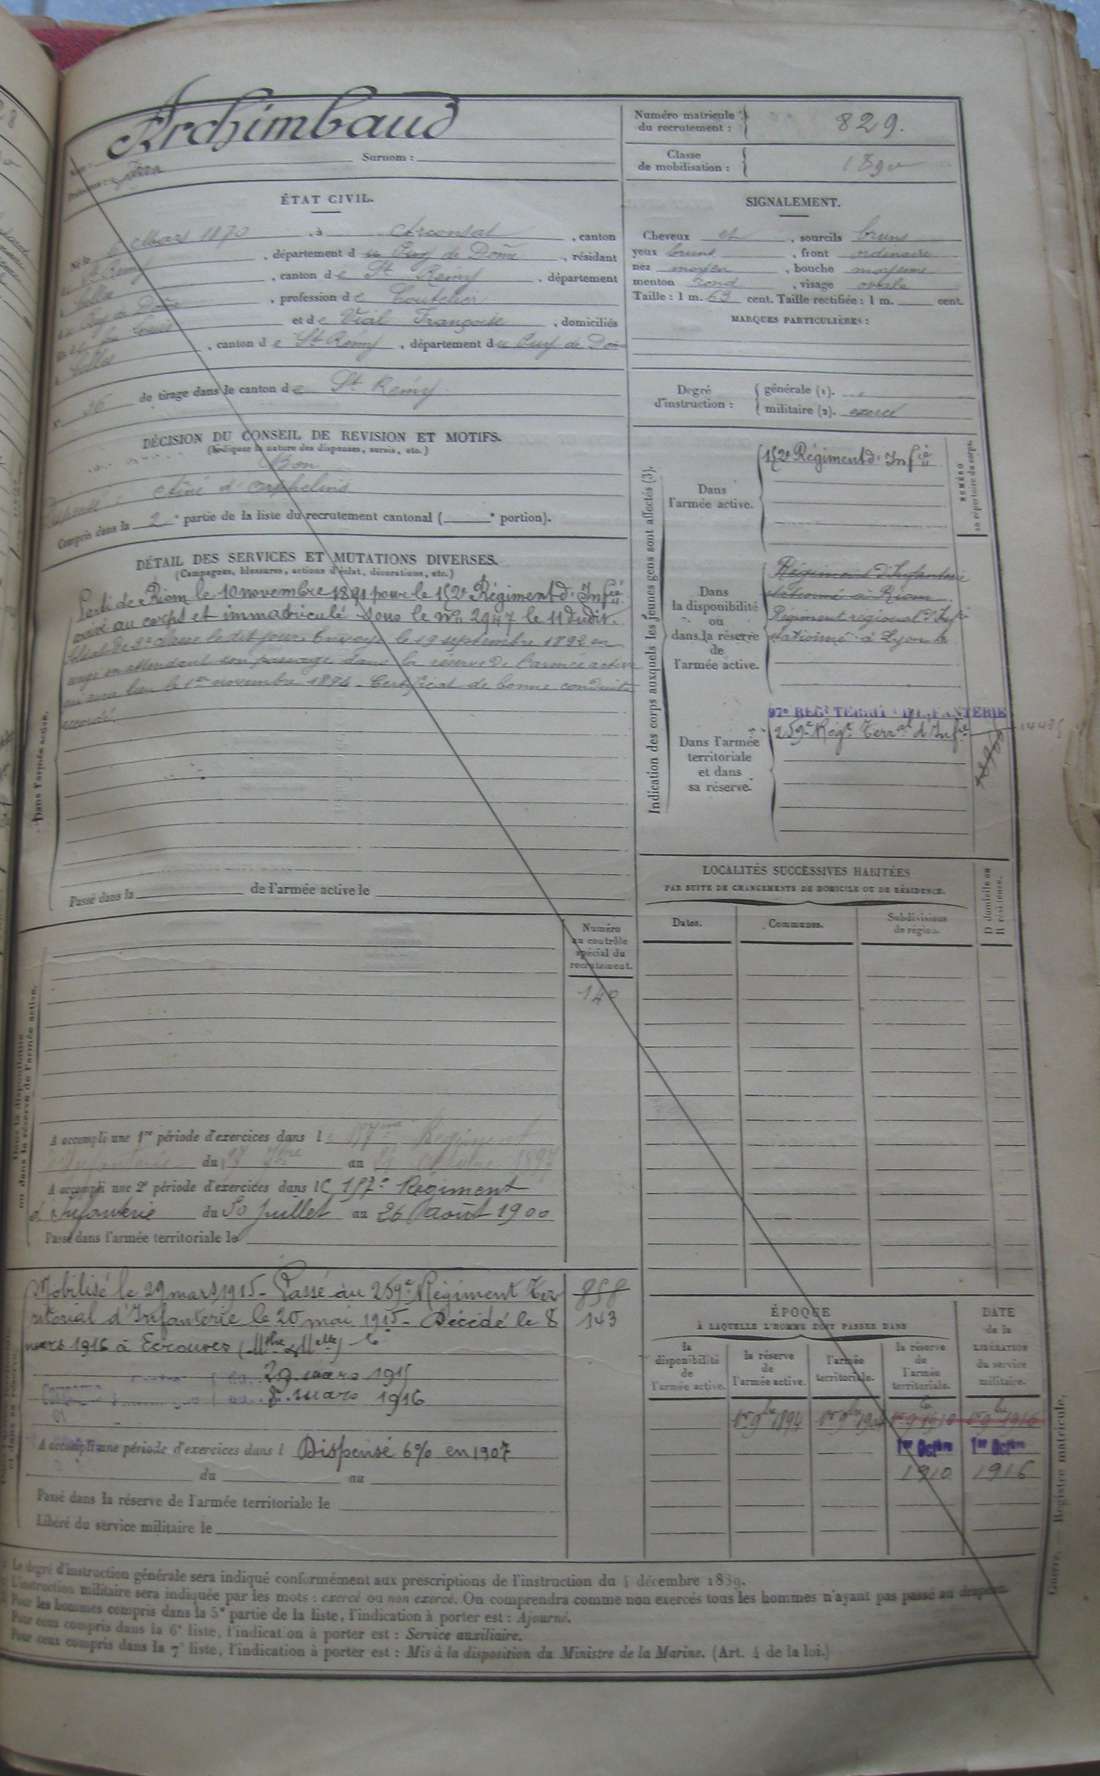 Archimbaud
Nom :
Prénoms : Jean Surnom :
Numéro matricule du recrutement : 829.
Classe de mobilisation : 1890
ÉTAT CIVIL.
Né le Mars 1870, à Arconsat, canton
d St Remy, département du Puy de Dôme, résidant
à Celles, canton de St Remy, département
du Puy de Dôme, profession de Coutelier
fils de feu Louis et de Vial Françoise, domiciliés
à Celles, canton de St Remy, département du Puy de Dôme
N° 26 de tirage dans le canton de St Remy.
SIGNALEMENT.
Cheveux et, sourcils bruns
yeux bruns, front ordinaire
nez moyen, bouche moyenne
menton rond, visage ovale
Taille : 1 m. 63 cent. Taille rectifiée : 1 m. cent.
MARQUES PARTICULIÈRES :
Degré d'instruction : générale (1).
militaire (2). exercé
DÉCISION DU CONSEIL DE REVISION ET MOTIFS.
(Indiquer la nature des dispenses, sursis, etc.)
Bon
Dispensé : Aîné d'orphelins
Compris dans la 2e partie de la liste du recrutement cantonal ( e portion).
DÉTAIL DES SERVICES ET MUTATIONS DIVERSES.
(Campagnes, blessures, actions d'éclat, décorations, etc.)
Parti de Riom le 10 novembre 1891 pour le 152e Régiment d'Infie
arrivé au corps et immatriculé sous le no 2947 le 11 dudit.
Soldat de 2e classe le dit jour. Envoyé le 19 septembre 1892 en
congé en attendant son passage dans la réserve de l'armée active
qui aura lieu le 1er novembre 1894. Certificat de bonne conduite
accordé.
Dans l'armée active.
Passé dans la de l'armée active le
Indication des corps auxquels les jeunes gens sont affectés (3).
NUMÉRO au répertoire du corps.
Dans l'armée active.
152e Régiment d'Infie
Dans la disponibilité ou dans la réserve de l'armée active.
Régiment d'Infanterie
stationné à Riom
Régiment régional d'Infie
stationné à Lyon
Dans l'armée territoriale et dans sa réserve.
97e REGt TERRal D'INFANTERIE
259e Régt Terral d'Infie
LOCALITÉS SUCCESSIVES HABITÉES
PAR SUITE DE CHANGEMENTS DE DOMICILE OU DE RÉSIDENCE.
Dates. Communes. Subdivisions de région. D domicile ou R résidence.
Numéro au contrôle spécial du recrutement.
140
ou dans la réserve de l'armée active.
A accompli une 1re période d'exercices dans le Régiment
d'Infanterie du au 1897
A accompli une 2e période d'exercices dans le 157e Régiment
d'Infanterie du 30 juillet au 26 août 1900
Passé dans l'armée territoriale le
Mobilisé le 29 mars 1915 - Passé au 259e Régiment Ter 858
ritorial d'Infanterie le 20 mai 1915 - Décédé le 8 143
mars 1916 à Ecrouves (Mthe & Melle)
29 mars 1915
8 mars 1916
A accompli une période d'exercices dans l Dispensé 6% en 1907
du au
Passé dans la réserve de l'armée territoriale le
Libéré du service militaire le
ÉPOQUE
À LAQUELLE L'HOMME DOIT PASSER DANS
la disponibilité de l'armée active. la réserve de l'armée active. l'armée territoriale. la réserve de l'armée territoriale.
DATE de la LIBÉRATION du service militaire.
1er 9bre 1894
1er Octbre 1er Octbre
1910 1916
Guerre. — Registre matricule.
Le degré d'instruction générale sera indiqué conformément aux prescriptions de l'instruction du 4 décembre 1889.
L'instruction militaire sera indiquée par les mots : exercé ou non exercé. On comprendra comme non exercés tous les hommes n'ayant pas passé au drapeau.
Pour les hommes compris dans la 5e partie de la liste, l'indication à porter est : Ajourné.
Pour ceux compris dans la 6e liste, l'indication à porter est : Service auxiliaire.
Pour ceux compris dans la 7e liste, l'indication à porter est : Mis à la disposition du Ministre de la Marine. (Art. 4 de la loi.)